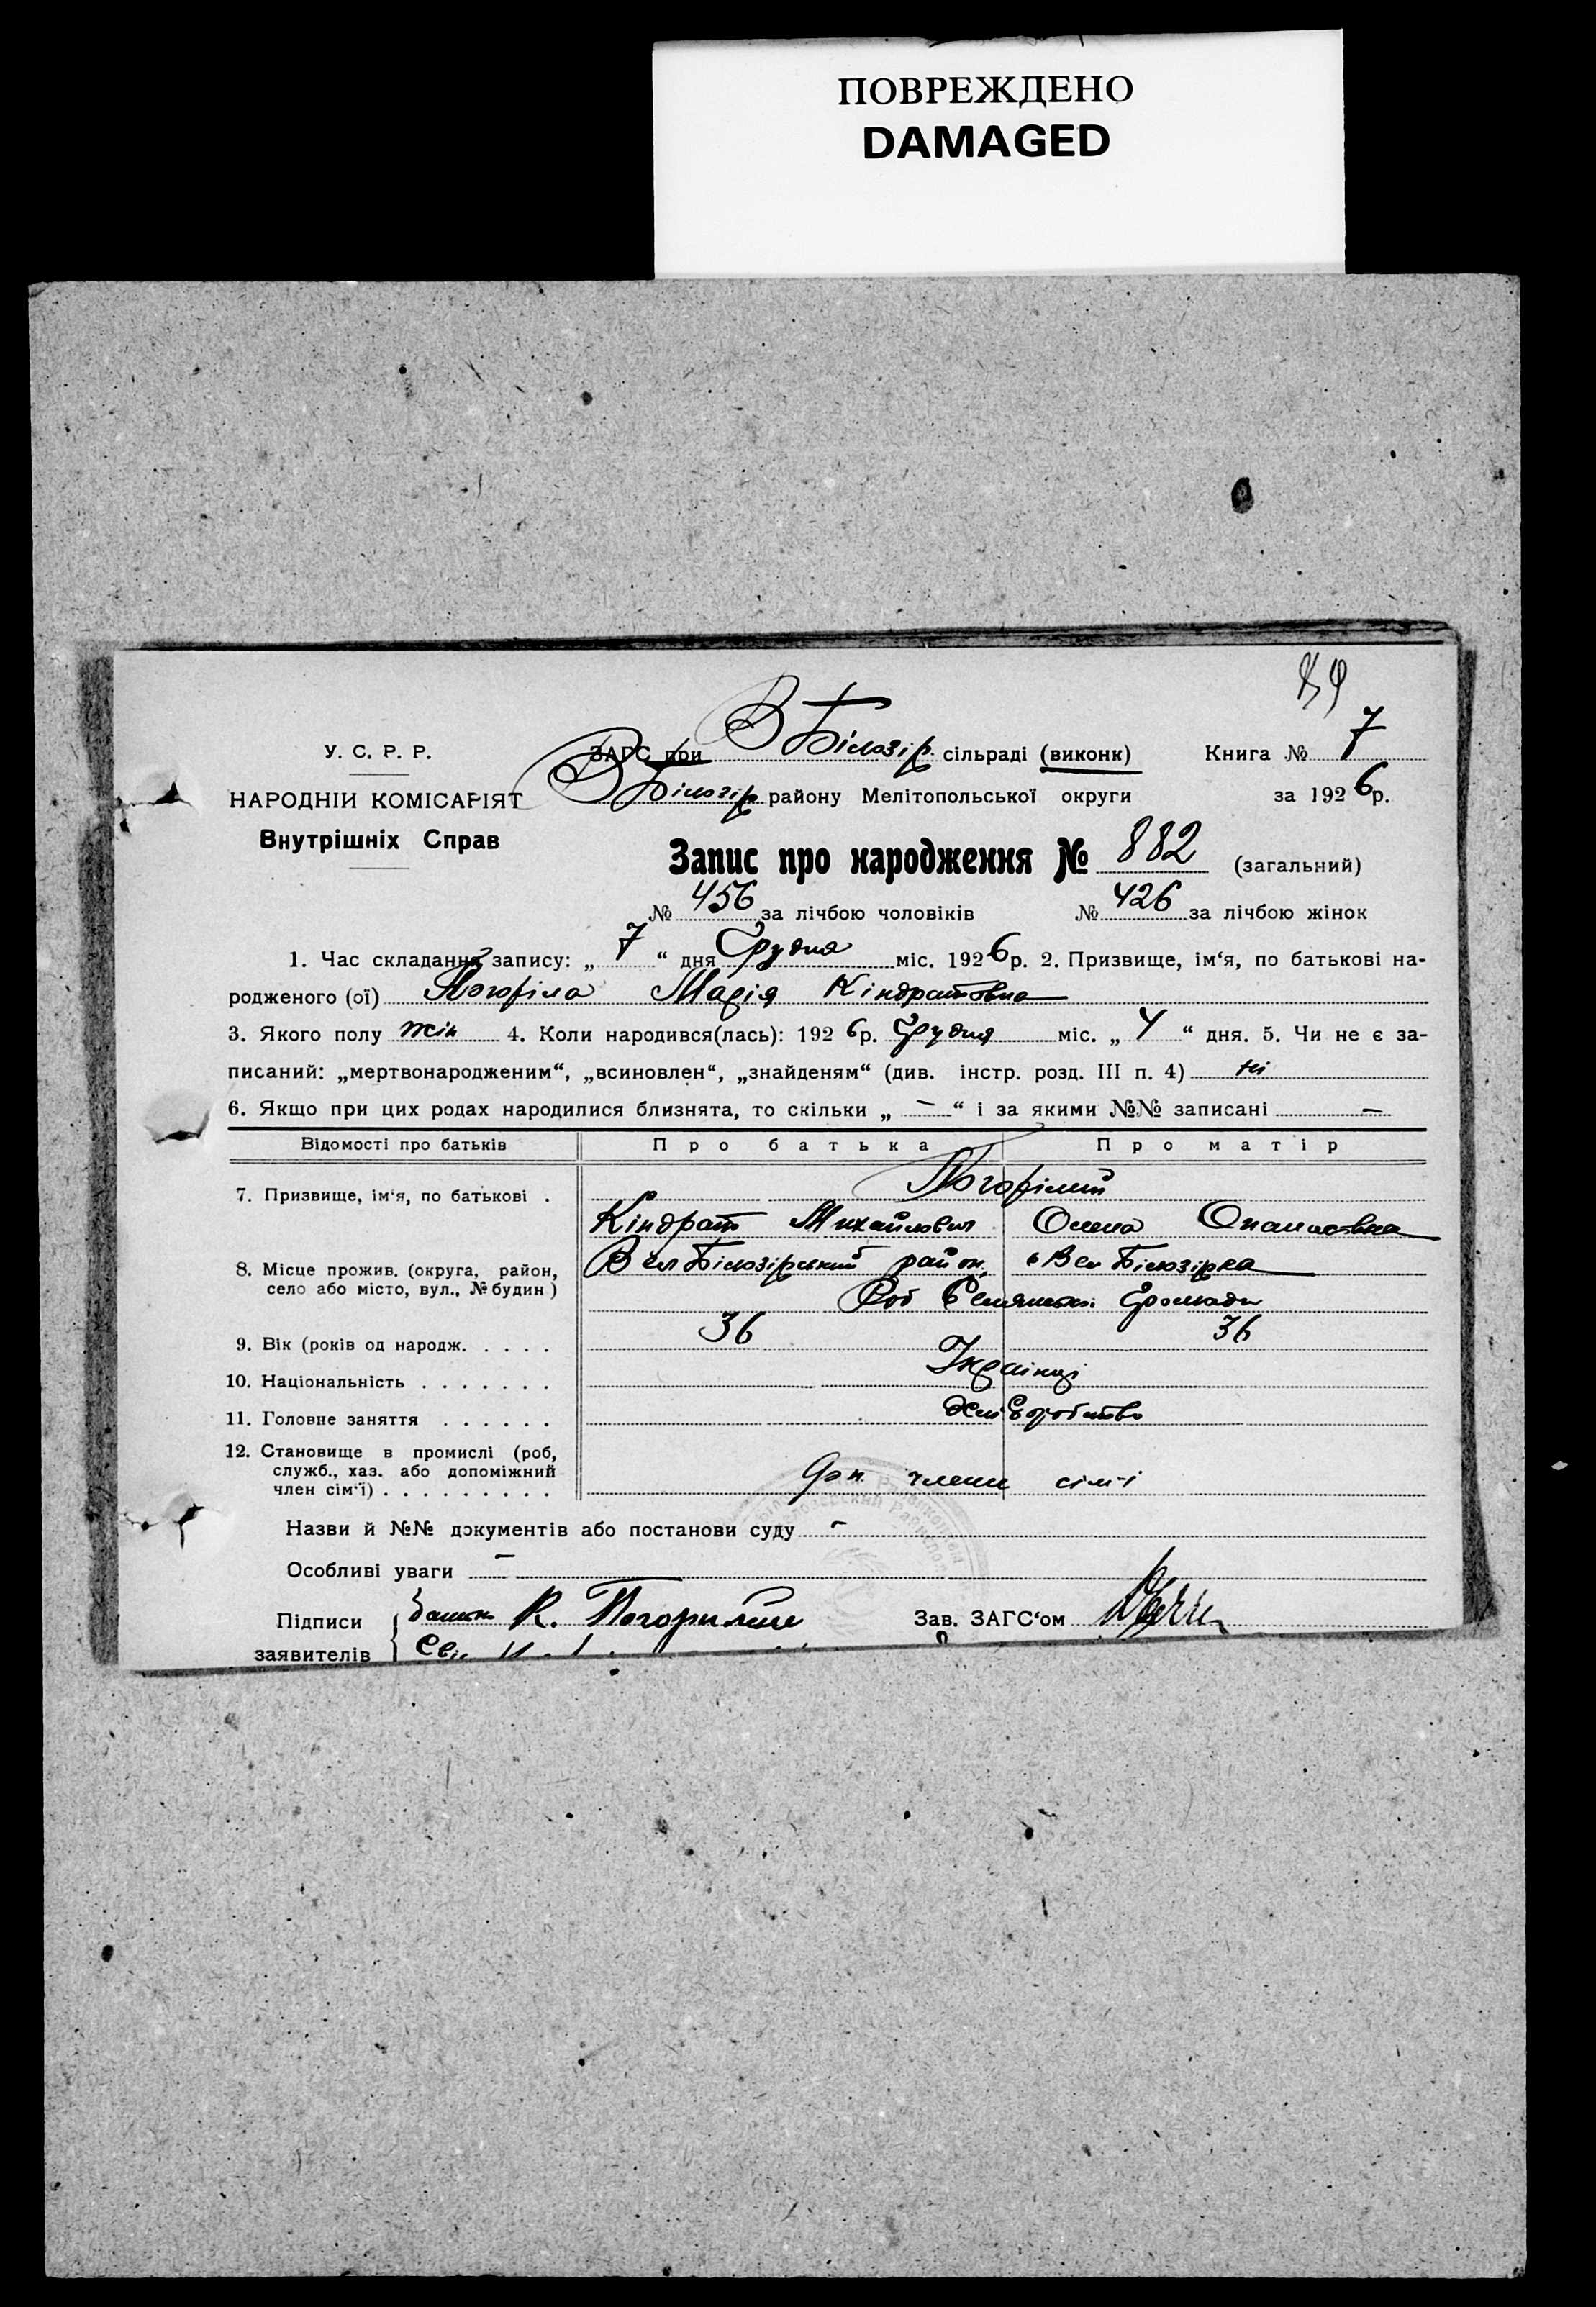 ПОВРЕЖДЕНО
DAMAGED
89
У. С. Р. Р.
ЗАГС при В Білозір. сільраді (виконк) Книга № 7
НАРОДНІЙ КОМІСАРІЯТ В Білозір району Мелітопольської округи за 1926р.
Внутрішніх Справ
Запис про народження № 882 (загальний)
№ 456 за лічбою чоловіків № 426 за лічбою жінок
1. Час складання запису: „ 7 “ дня Грудня міс. 1926р. 2. Призвище, ім‘я, по батькові на-
родженого (ої) Погоріла Марія Кіндратовна
3. Якого полу жін 4. Коли народився(лась): 1926р. Грудня міс. „ 4 “ дня. 5. Чи не є за-
писаний: „мертвонародженим“, „всиновлен“, „знайденям“ (див. інстр. розд. III п. 4) ні
6. Якщо при цих родах народилися близнята, то скільки „ — “ і за якими №№ записані —
Відомості про батьків Про батька Про матір
7. Призвище, ім‘я, по батькові . Погорілий
Кіндрат Михайлович Олена Опанасовна
8. Місце прожив. (округа, район, село або місто, вул., № будин) Вел Білозірський район, с Вел Білозірка
Громади
9. Вік (років од народж. . . . . 36 36
10. Національність . . . . . . . Українці
11. Головне заняття . . . . . . Хліборобство
12. Становище в промислі (роб,
служб., хаз. або допоміжний
член сім‘ї) . . . . . . . . . Доп члени сім‘ї
Назви й №№ документів або постанови суду —
Особливі уваги —
Підписи К. Погорилий Зав. ЗАГС‘ом
заявителів